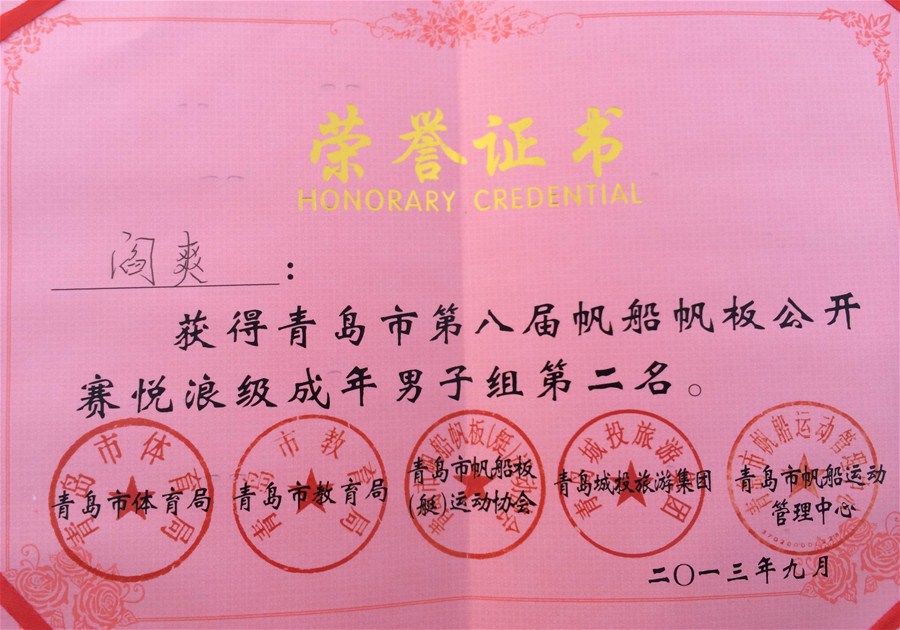 荣誉证书
HONORARY CREDENTIAL
阎爽：
获得青岛市第八届帆船帆板公开
赛悦浪级成年男子组第二名。
青岛市体育局
青岛市体育局
青岛市教育局
青岛市教育局
青岛市帆船帆板
(艇)运动协会
青岛城投旅游集团
青岛城投旅游集团
青岛市帆船运动
管理中心
二〇一三年九月